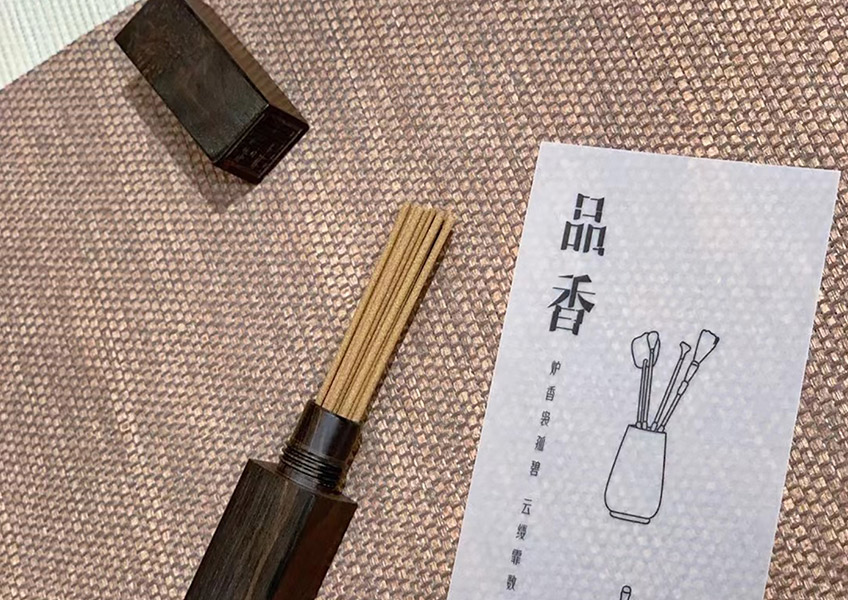 品香
炉香袅孤碧 云缕霏数